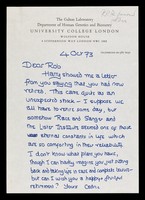 The Galton Laboratory
Department of Human Genetics and Biometry
UNIVERSITY COLLEGE LONDON
WOLFSON HOUSE
4 STEPHENSON WAY LONDON NW1 2HE
4 Oct 73
Dear Rob
Harry showed me a letter
from you saying that you had now
retired. This came quite as an
unexpected shock - I suppose we
all have to retire some day, but
somehow 'Race and Sanger' and
the Lister Institute seemed one of those
eternal constants in life which are
so comforting in their reliability.
I don't know what plans you have,
though I can hardly imagine you just sitting
back and taking life in ease and complete leisure -
but can I wish you a happy &
retirement? Yours Cedric